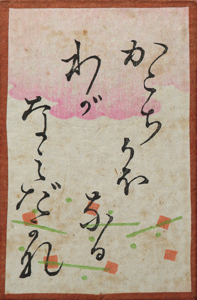 かこちかほ
なる
わが
なみだかな